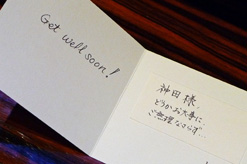 Get well soon!
神田 様、
どうかお大事に、
ご無理なさらず…